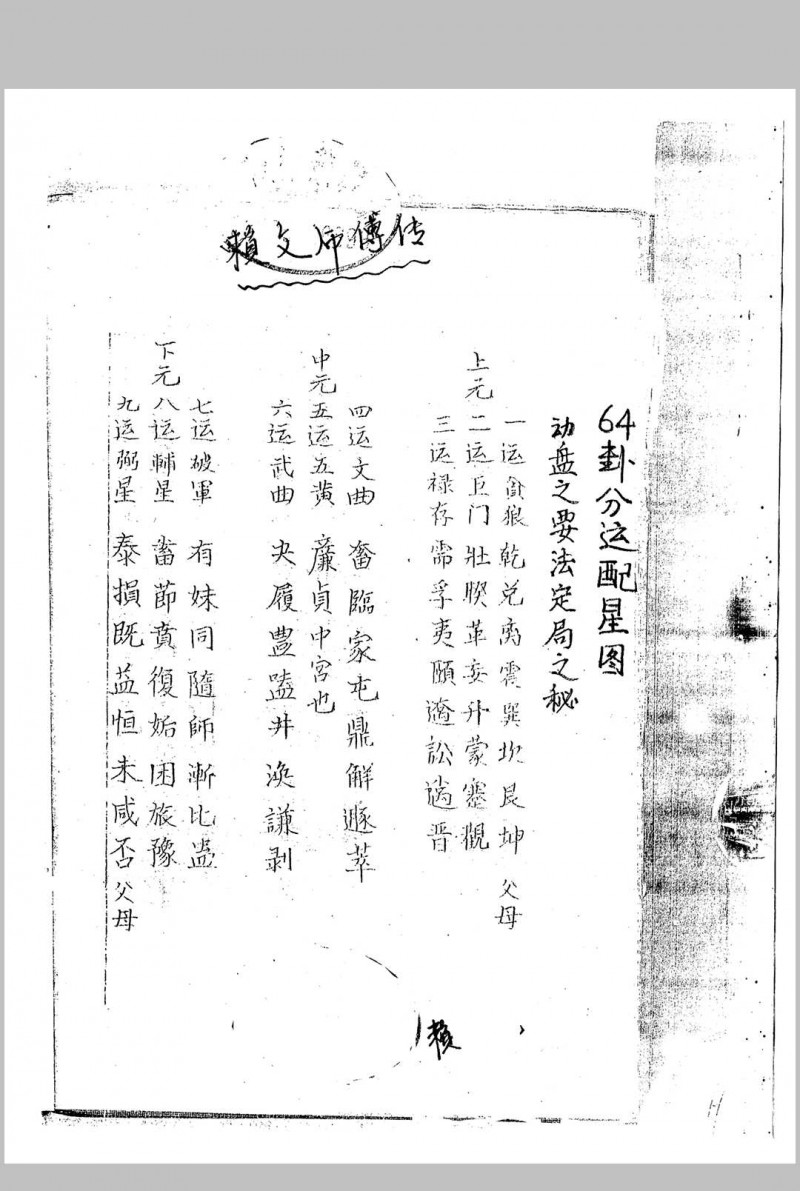 賴文师傅传
64卦分运配星图
动盘之要法定局之秘
一运貪狼 乾兑离震巽坎艮坤 父母
上元二运巨门 壯睽革妄升蒙蹇觀
三运禄存 需孚夷頤過訟過晋
四运文曲 畜臨家屯鼎解遯萃
中元五运五黄 廉貞中宮也
六运武曲 夬履豊嗑井渙謙剥
七运破軍 有妹同隨師漸比蛊
下元八运輔星 畜節賁復姤困旅豫
九运弼星 泰損既益恒未咸否父母
賴